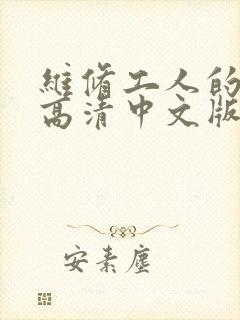 維脩工人的
高清中文版
安素塵